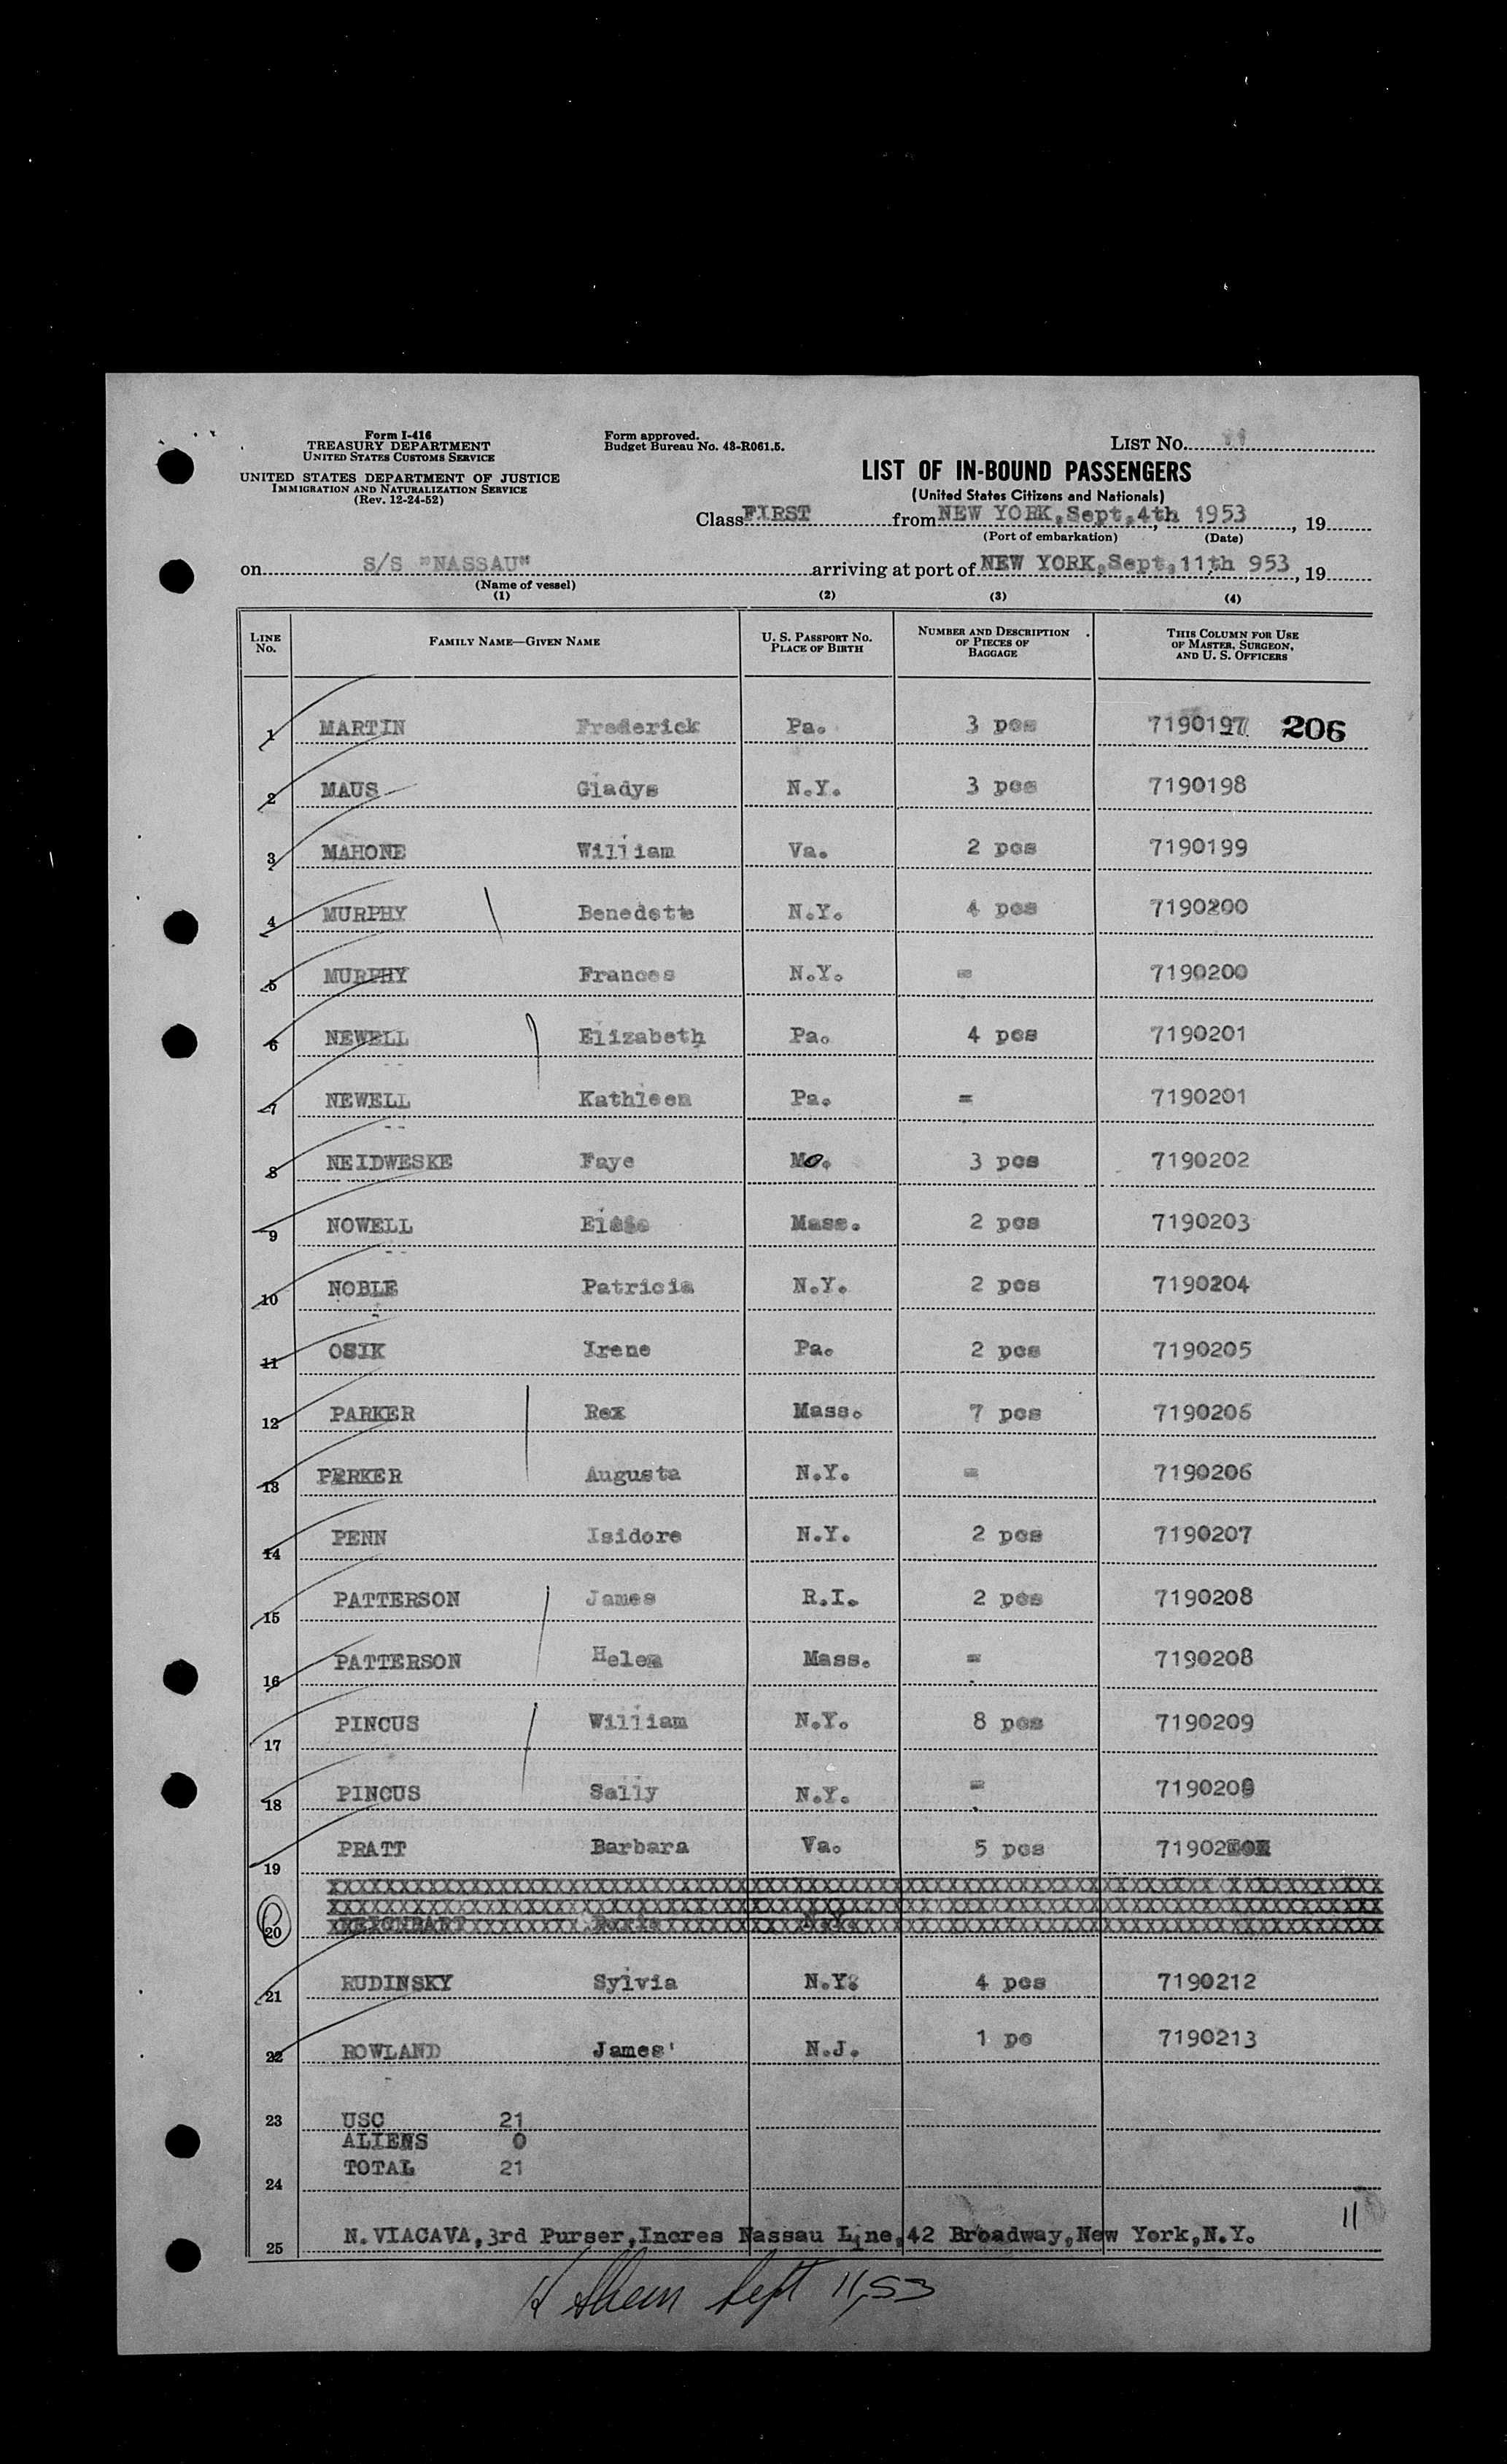 Form I-416
TREASURY DEPARTMENT
UNITED STATES CUSTOMS SERVICE
UNITED STATES DEPARTMENT OF JUSTICE
IMMIGRATION AND NATURALIZATION SERVICE
(Rev. 12-24-52)
Form approved.
Budget Bureau No. 43-R061.5.
LIST No. 11
LIST OF IN-BOUND PASSENGERS
(United States Citizens and Nationals)
Class FIRST from NEW YORK, Sept, 4th 1953, 19
(Port of embarkation) (Date)
on S/S "NASSAU" arriving at port of NEW YORK, Sept, 11th 953, 19
(Name of vessel)
(1) (2) (3) (4)
LINE No. FAMILY NAME—GIVEN NAME U. S. PASSPORT No. PLACE OF BIRTH NUMBER AND DESCRIPTION OF PIECES OF BAGGAGE THIS COLUMN FOR USE OF MASTER, SURGEON, AND U. S. OFFICERS
1 MARTIN Frederick Pa. 3 pcs 7190197 206
2 MAUS Gladys N.Y. 3 pcs 7190198
3 MAHONE William Va. 2 pcs 7190199
4 MURPHY Benedette N.Y. 4 pcs 7190200
5 MURPHY Frances N.Y. = 7190200
6 NEWELL Elizabeth Pa. 4 pcs 7190201
7 NEWELL Kathleen Pa. = 7190201
8 NEIDWESKE Faye Mo. 3 pcs 7190202
9 NOWELL Elsie Mass. 2 pcs 7190203
10 NOBLE Patricia N.Y. 2 pcs 7190204
11 OSIK Irene Pa. 2 pcs 7190205
12 PARKER Rex Mass. 7 pcs 7190206
13 PERKER Augusta N.Y. = 7190206
14 PENN Isidore N.Y. 2 pcs 7190207
15 PATTERSON James R.I. 2 pcs 7190208
16 PATTERSON Helen Mass. = 7190208
17 PINCUS William N.Y. 8 pcs 7190209
18 PINCUS Sally N.Y. = 7190209
19 PRATT Barbara Va. 5 pcs
20 N.Y.
21 RUDINSKY Sylvia N.Y. 4 pcs 7190212
22 ROWLAND James' N.J. 1 pc 7190213
23 USC 21
ALIENS 0
24 TOTAL 21
11
25 N. VIACAVA, 3rd Purser, Incres Nassau Line, 42 Broadway, New York, N.Y.
Sept 11, 53